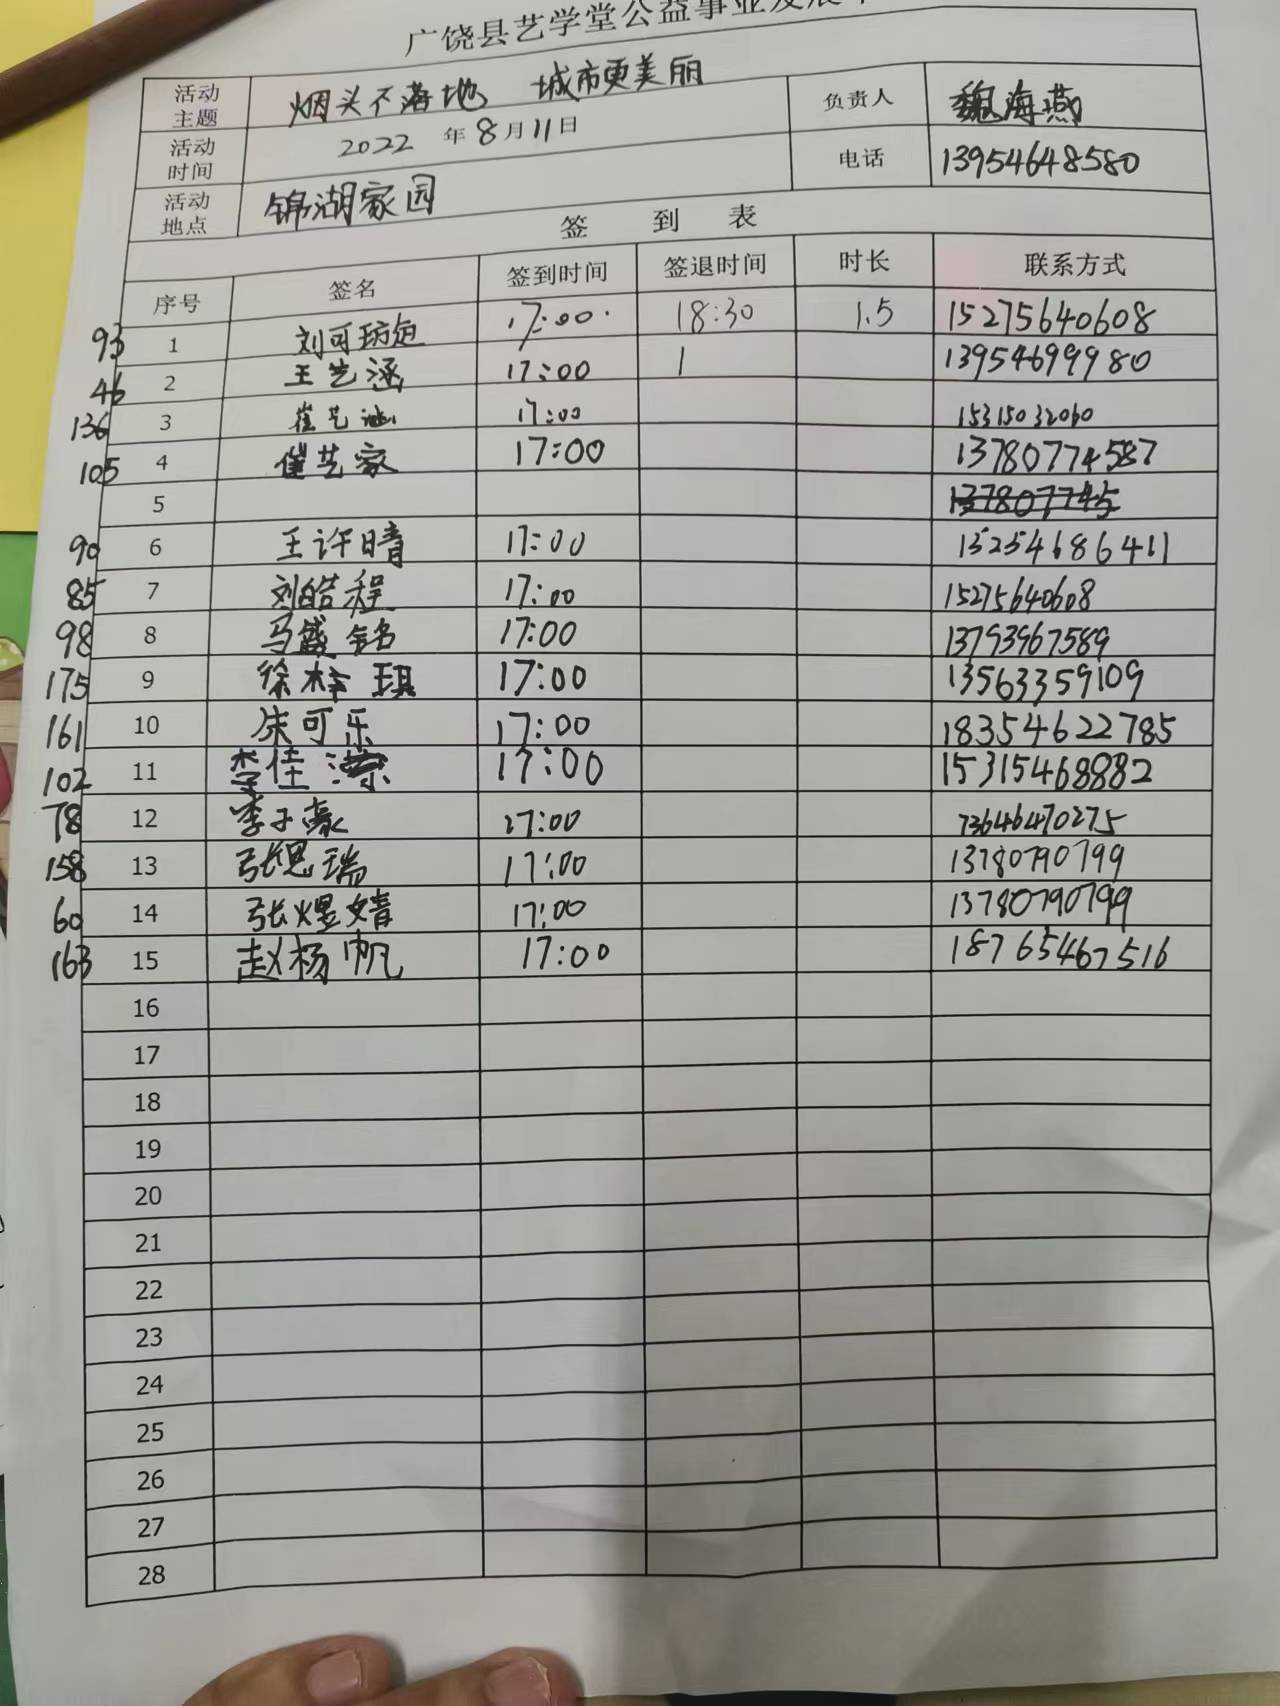 广饶县艺学堂公益事业发展中
活动主题 烟头不落地 城市更美丽 负责人 魏海燕
活动时间 2022 年 8 月 11 日 电话 13954648580
活动地点 锦湖家园
签 到 表
序号 签名 签到时间 签退时间 时长 联系方式
93 1 刘可 17:00 18:30 1.5 15275640608
46 2 王艺涵 17:00 13954699980
136 3 崔艺涵 17:00 15315032060
105 4 崔艺家 17:00 13780774587
5 137807745
90 6 王许晴 17:00 15254686411
85 7 刘皓程 17:00 15275640608
98 8 马盛铭 17:00 13793967589
175 9 徐梓琪 17:00 13563359109
161 10 朱可乐 17:00 18354622785
102 11 李佳 17:00 15315468882
78 12 李子豪 17:00 13646470275
158 13 张思瑞 17:00 13780790799
60 14 张煜婧 17:00 13780790799
163 15 赵杨帆 17:00 18765467516
16
17
18
19
20
21
22
23
24
25
26
27
28